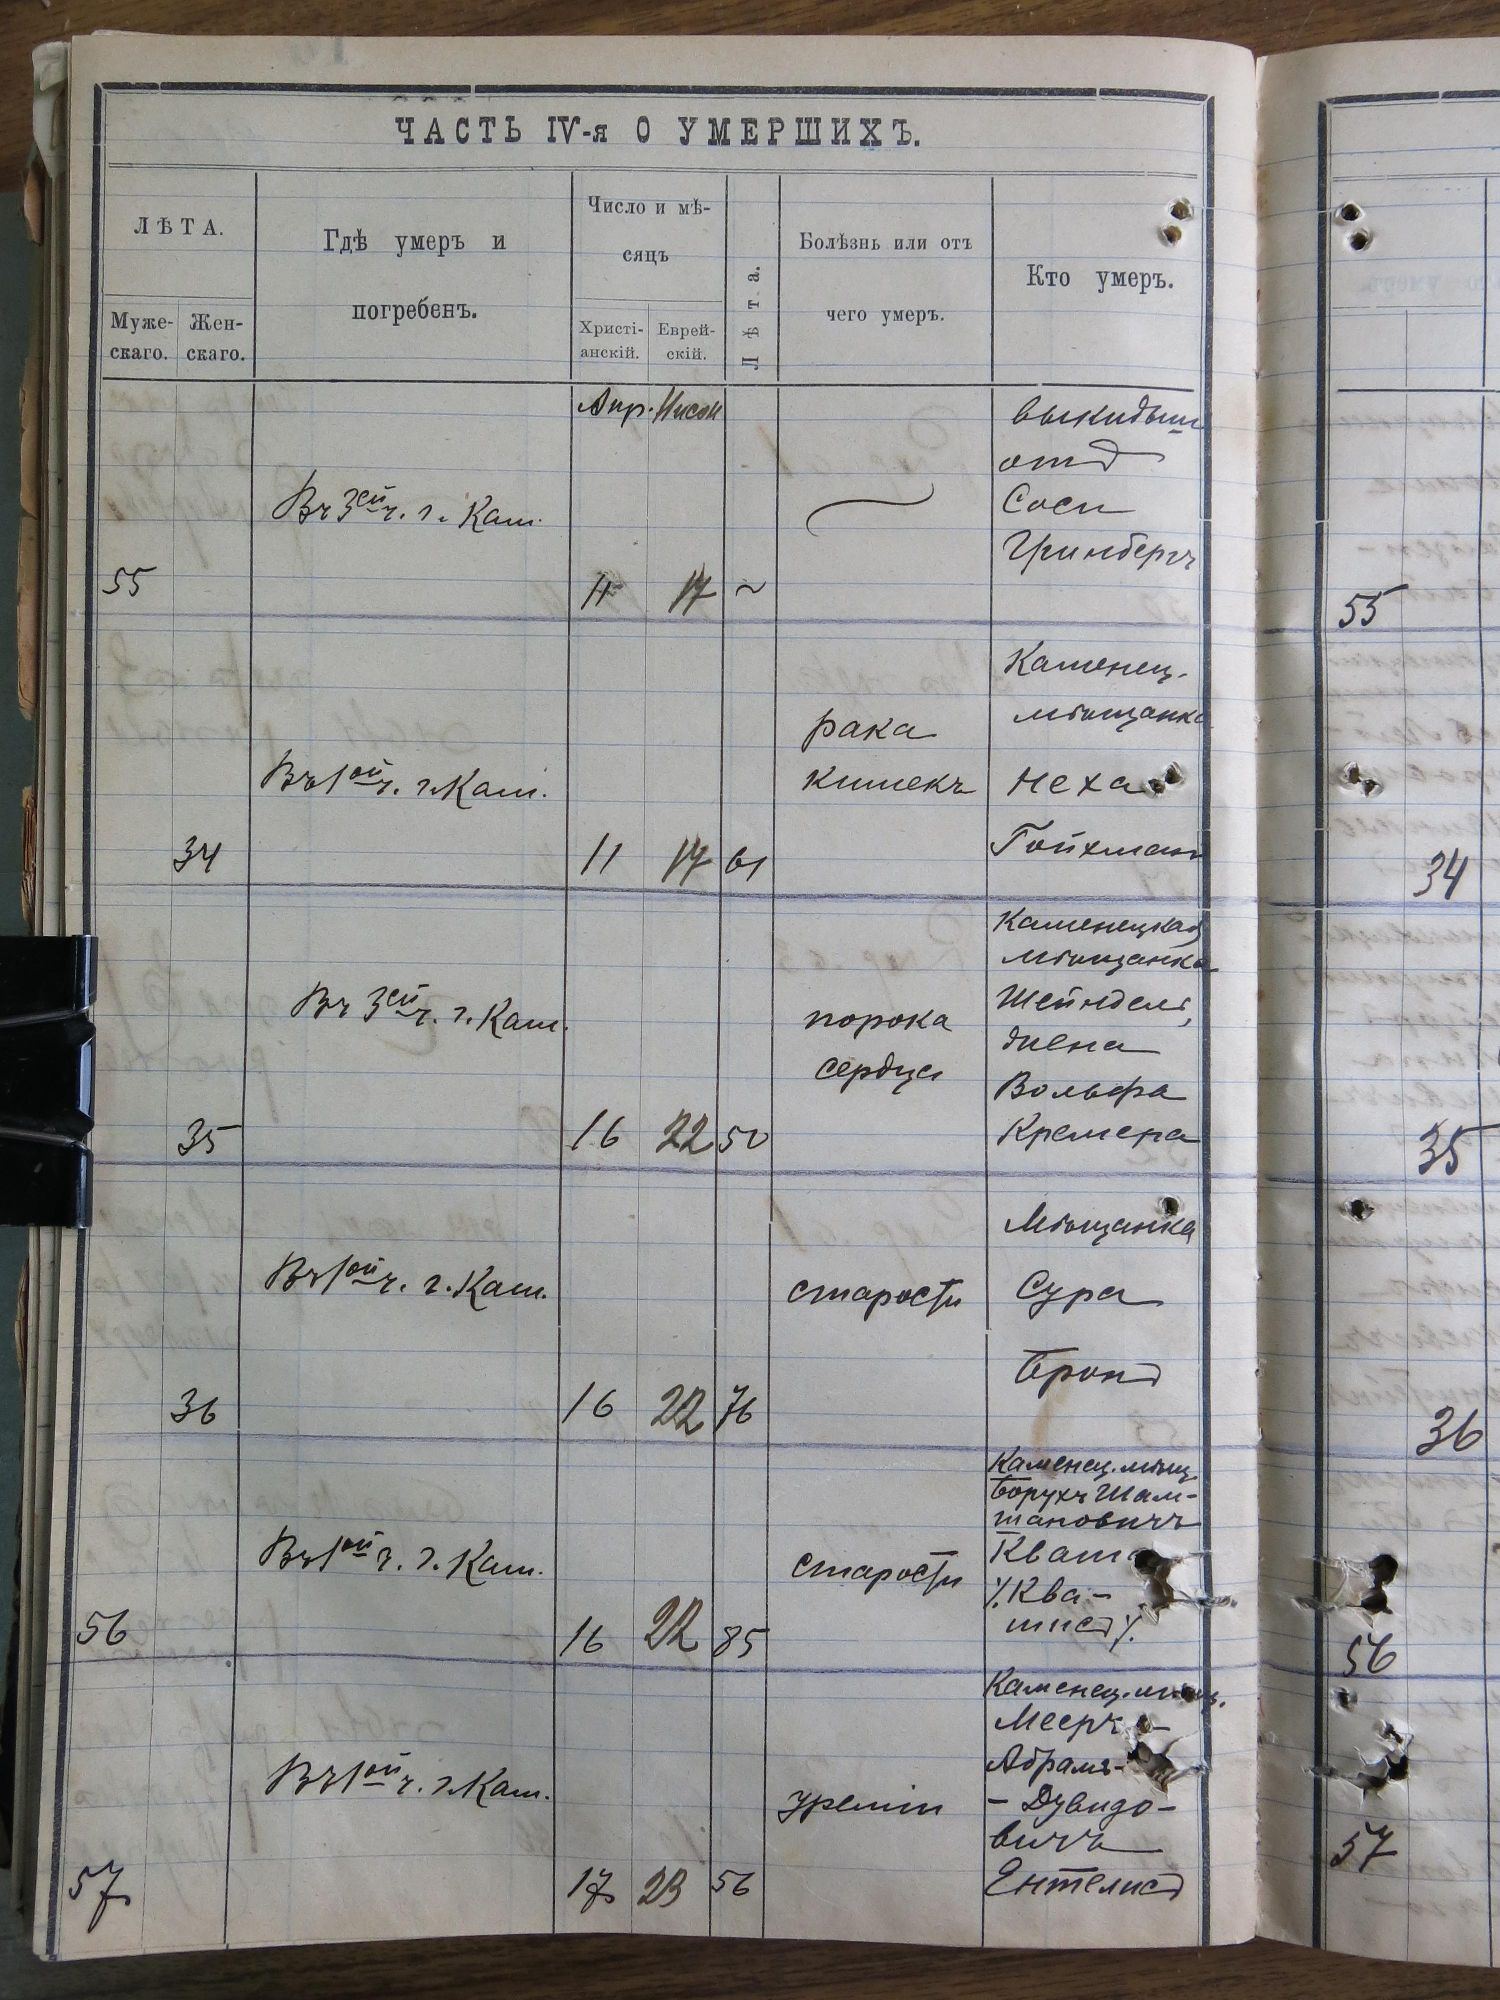 ЧАСТЬ IV-я О УМЕРШИХЪ.
ЛѢТА.
Муже-
скаго.
Жен-
скаго.
Гдѣ умеръ и
погребенъ.
Число и мѣ-
сяцъ
Христі-
анскій.
Еврей-
скій.
Лѣта.
Болѣзнь или отъ
чего умеръ.
Кто умеръ.
Апр. Нисон
55
Въ 3ей ч. г. Кам.
11 17 ~
выкидыш
отъ
Соси
Гринбергъ
34
Въ 1ой ч. г. Кам.
11 17 61
рака
кишекъ
Каменец.
мѣщанка
Неха
Гойхман
35
Въ 3ей ч. г. Кам.
16 22 50
порока
сердца
Каменецкая
мѣщанка
Шейндель,
жена
Вольфа
Кремера
36
Въ 1ой ч. г. Кам.
16 22 76
старости
Мѣщанка
Сура
Бронъ
56
Въ 1ой ч. г. Кам.
16 22 85
старости
Каменец. мѣщ.
Борухъ Шам-
шановичъ
Кваш
٪Ква-
шисъ٪
57
Въ 1ой ч. г. Кам.
17 23 56
уреміи
Каменец.
Мееръ-
Абрамъ-
- Дувидо-
вичъ
Ентелисъ
55
34
35
36
56
57